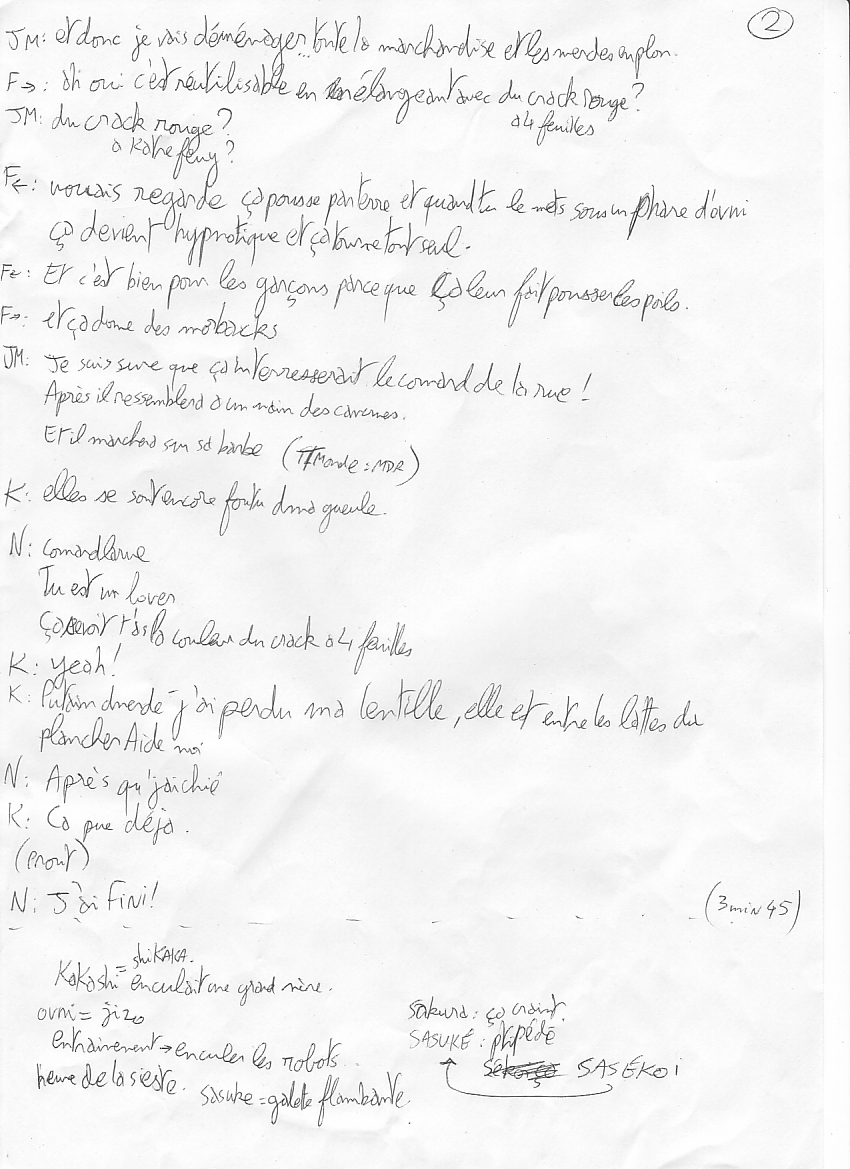 2
JM: et donc je vais déménager toute la marchandise et les merdes en plon.
F→: ah oui c'est réutilisable en mélangeant avec du crack rouge?
à 4 feuilles
JM: du crack rouge?
à katre feuy?
F←: nouais regarde ça pousse par terre et quand tu le mets sous un phare d'ovni
ça devient hypnotique et ça tourne tout seul.
F←: Et c'est bien pour les garçons parce que ça leur fait pousser les poils.
F→: et ça donne des morbacks
JM: Je suis sure que ça interresserait le comard de la rue!
Après il ressemblera a un nain des cavernes.
Et il marchera sur sa barbe (Tt Monde: MDR)
K: elles se sont encore foutu d'ma gueule.
N: comardlarue
Tu est un lover
t'as la couleur du crack a 4 feuilles
K: yeah!
K: Putain d'merde j'ai perdu ma lentille, elle et entre les lattes du
plancher Aide moi
N: Après qu'j'ai chié
K: Ca pue déja.
(Prout)
N: J'ai fini!
(3min45)
= shiKAKA.
Kakashi enculait une grand mère.
ovni = jizo
entrainement → enculer les robots.
heure de la sieste.
sasuke = galete flambante.
sakura: ça craint.
SASUKÉ: ptipédé
SASÉKOI